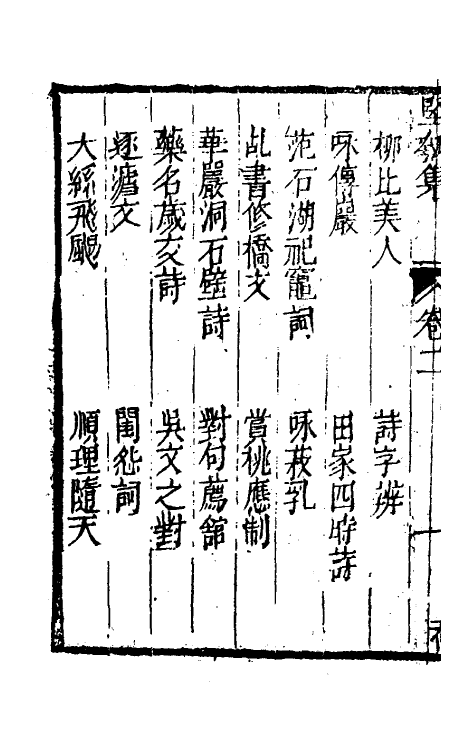 堅瓠集 卷二
柳比美人 詩字辨
咏傅巖 田家四時詩
范石湖祀竈詞 咏萩乳
乩書修橋文 賞桃應制
華嚴洞石壁詩 對句薦舘
藥名歲交詩 吳文之對
逐瘧文 閨怨詞
大絲飛颺 順理隨天